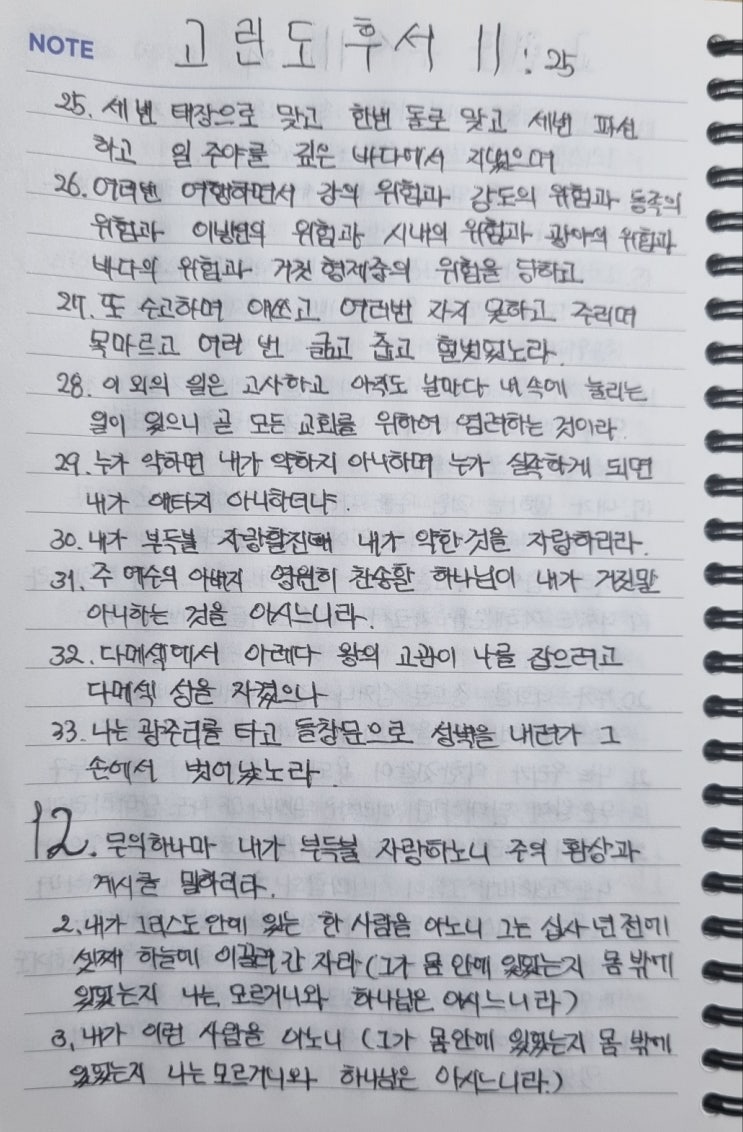 NOTE
고린도후서 11:25
25. 세번 태장으로 맞고 한번 돌로 맞고 세번 파선
하고 일 주야를 깊은 바다에서 지냈으며
26. 여러번 여행하면서 강의 위험과 강도의 위험과 동족의
위험과 이방인의 위험과 시내의 위험과 광야의 위험과
바다의 위험과 거짓 형제중의 위험을 당하고
27. 또 수고하며 애쓰고 여러번 자지 못하고 주리며
목마르고 여러 번 굶고 춥고 헐벗었노라.
28. 이 외의 일은 고사하고 아직도 날마다 내 속에 눌리는
일이 있으니 곧 모든 교회를 위하여 염려하는 것이라.
29. 누가 약하면 내가 약하지 아니하며 누가 실족하게 되면
내가 애타지 아니하더냐.
30. 내가 부득불 자랑할진대 내가 약한 것을 자랑하리라.
31. 주 예수의 아버지 영원히 찬송할 하나님이 내가 거짓말
아니하는 것을 아시느니라.
32. 다메섹에서 아레다 왕의 고관이 나를 잡으려고
다메섹 성을 지켰으나
33. 나는 광주리를 타고 들창문으로 성벽을 내려가 그
손에서 벗어났노라.
12. 무익하나마 내가 부득불 자랑하노니 주의 환상과
계시를 말하리라.
2. 내가 그리스도 안에 있는 한 사람을 아노니 그는 십사 년 전에
셋째 하늘에 이끌려 간 자라 (그가 몸 안에 있었는지 몸 밖에
있었는지 나는 모르거니와 하나님은 아시느니라)
3. 내가 이런 사람을 아노니 (그가 몸 안에 있었는지 몸 밖에
있었는지 나는 모르거니와 하나님은 아시느니라.)